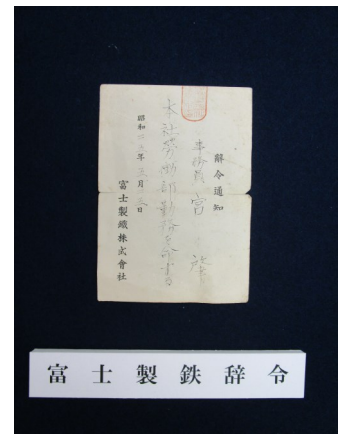 辭令通知
事務員 宮
本社勞働部勤務を命ず
昭和 年 月 日
富士製鐵株式會社
富士製鉄辞令